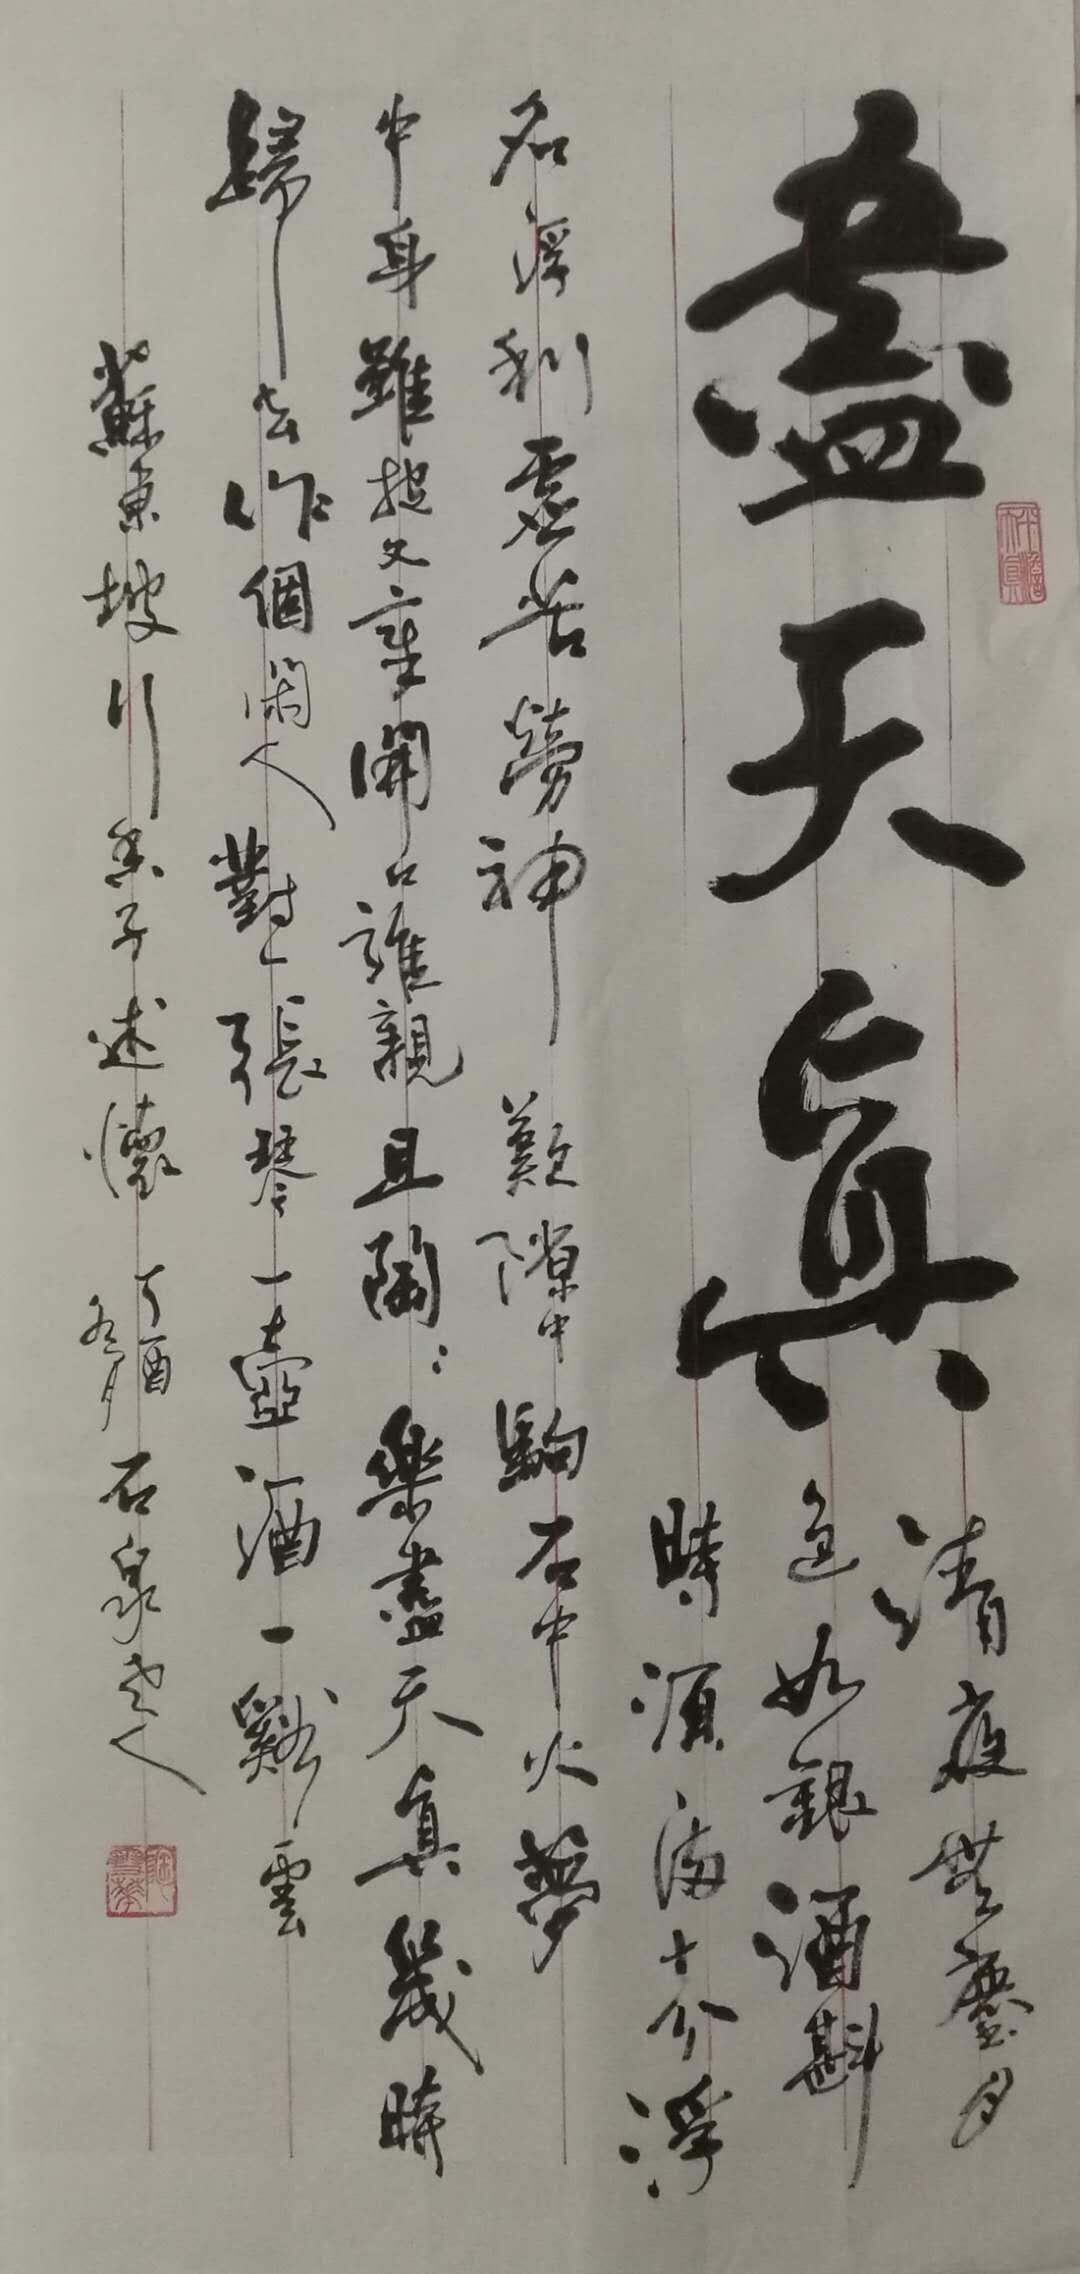 盡天真
清夜無塵月
色如銀酒斟
時須滿十分浮
名浮利虛苦勞神歎隙中駒石中火夢
中身雖抱文章開口誰親且陶〻樂盡天真幾時
歸去作個閑人對一張琴一壺酒一谿雲
蘇東坡行香子述懷丁酉月石泉老人